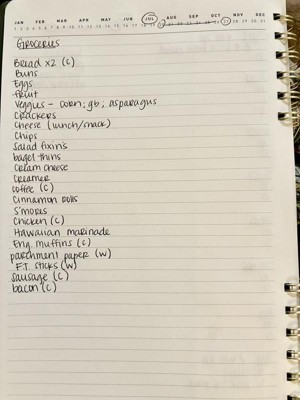 JAN FEB MAR APR MAY JUN JUL AUG SEP OCT NOV DEC
1 2 3 4 5 6 7 8 9 10 11 12 13 14 15 16 17 18 19 20 21 22 23 24 25 26 27 28 29 30 31
GROCERIES
Bread x2 (c)
Buns
Eggs
Fruit
Veggies - corn, gb, asparagus
Crackers
Cheese (lunch/snack)
Chips
Salad fixins
bagel thins
Cream cheese
Creamer
coffee (c)
Cinnamon rolls
S'mores
Chicken (c)
Hawaiian marinade
Eng. muffins (c)
parchment paper (w)
F.T. sticks (w)
sausage (c)
bacon (c)